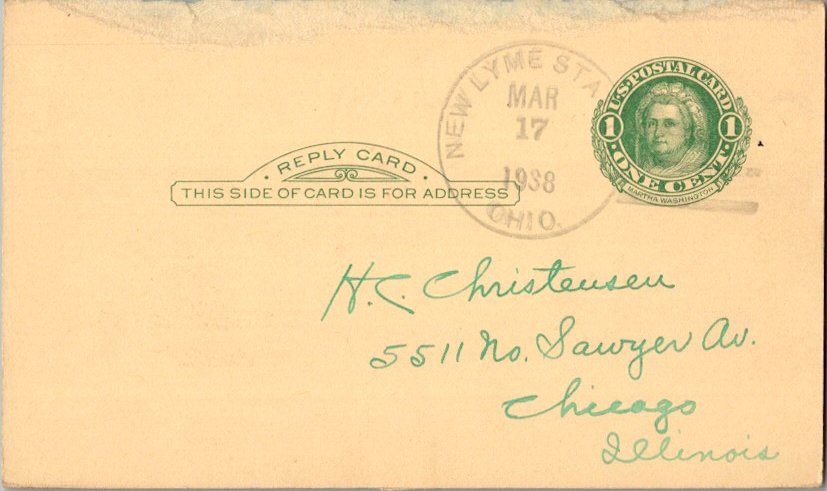 NEW LYME STA
MAR
17
1938
OHIO.
U.S. POSTAL CARD
1 1
ONE CENT
MARTHA WASHINGTON
REPLY CARD
THIS SIDE OF CARD IS FOR ADDRESS
H. C. Christensen
5511 No. Sawyer Av.
Chicago
Illinois